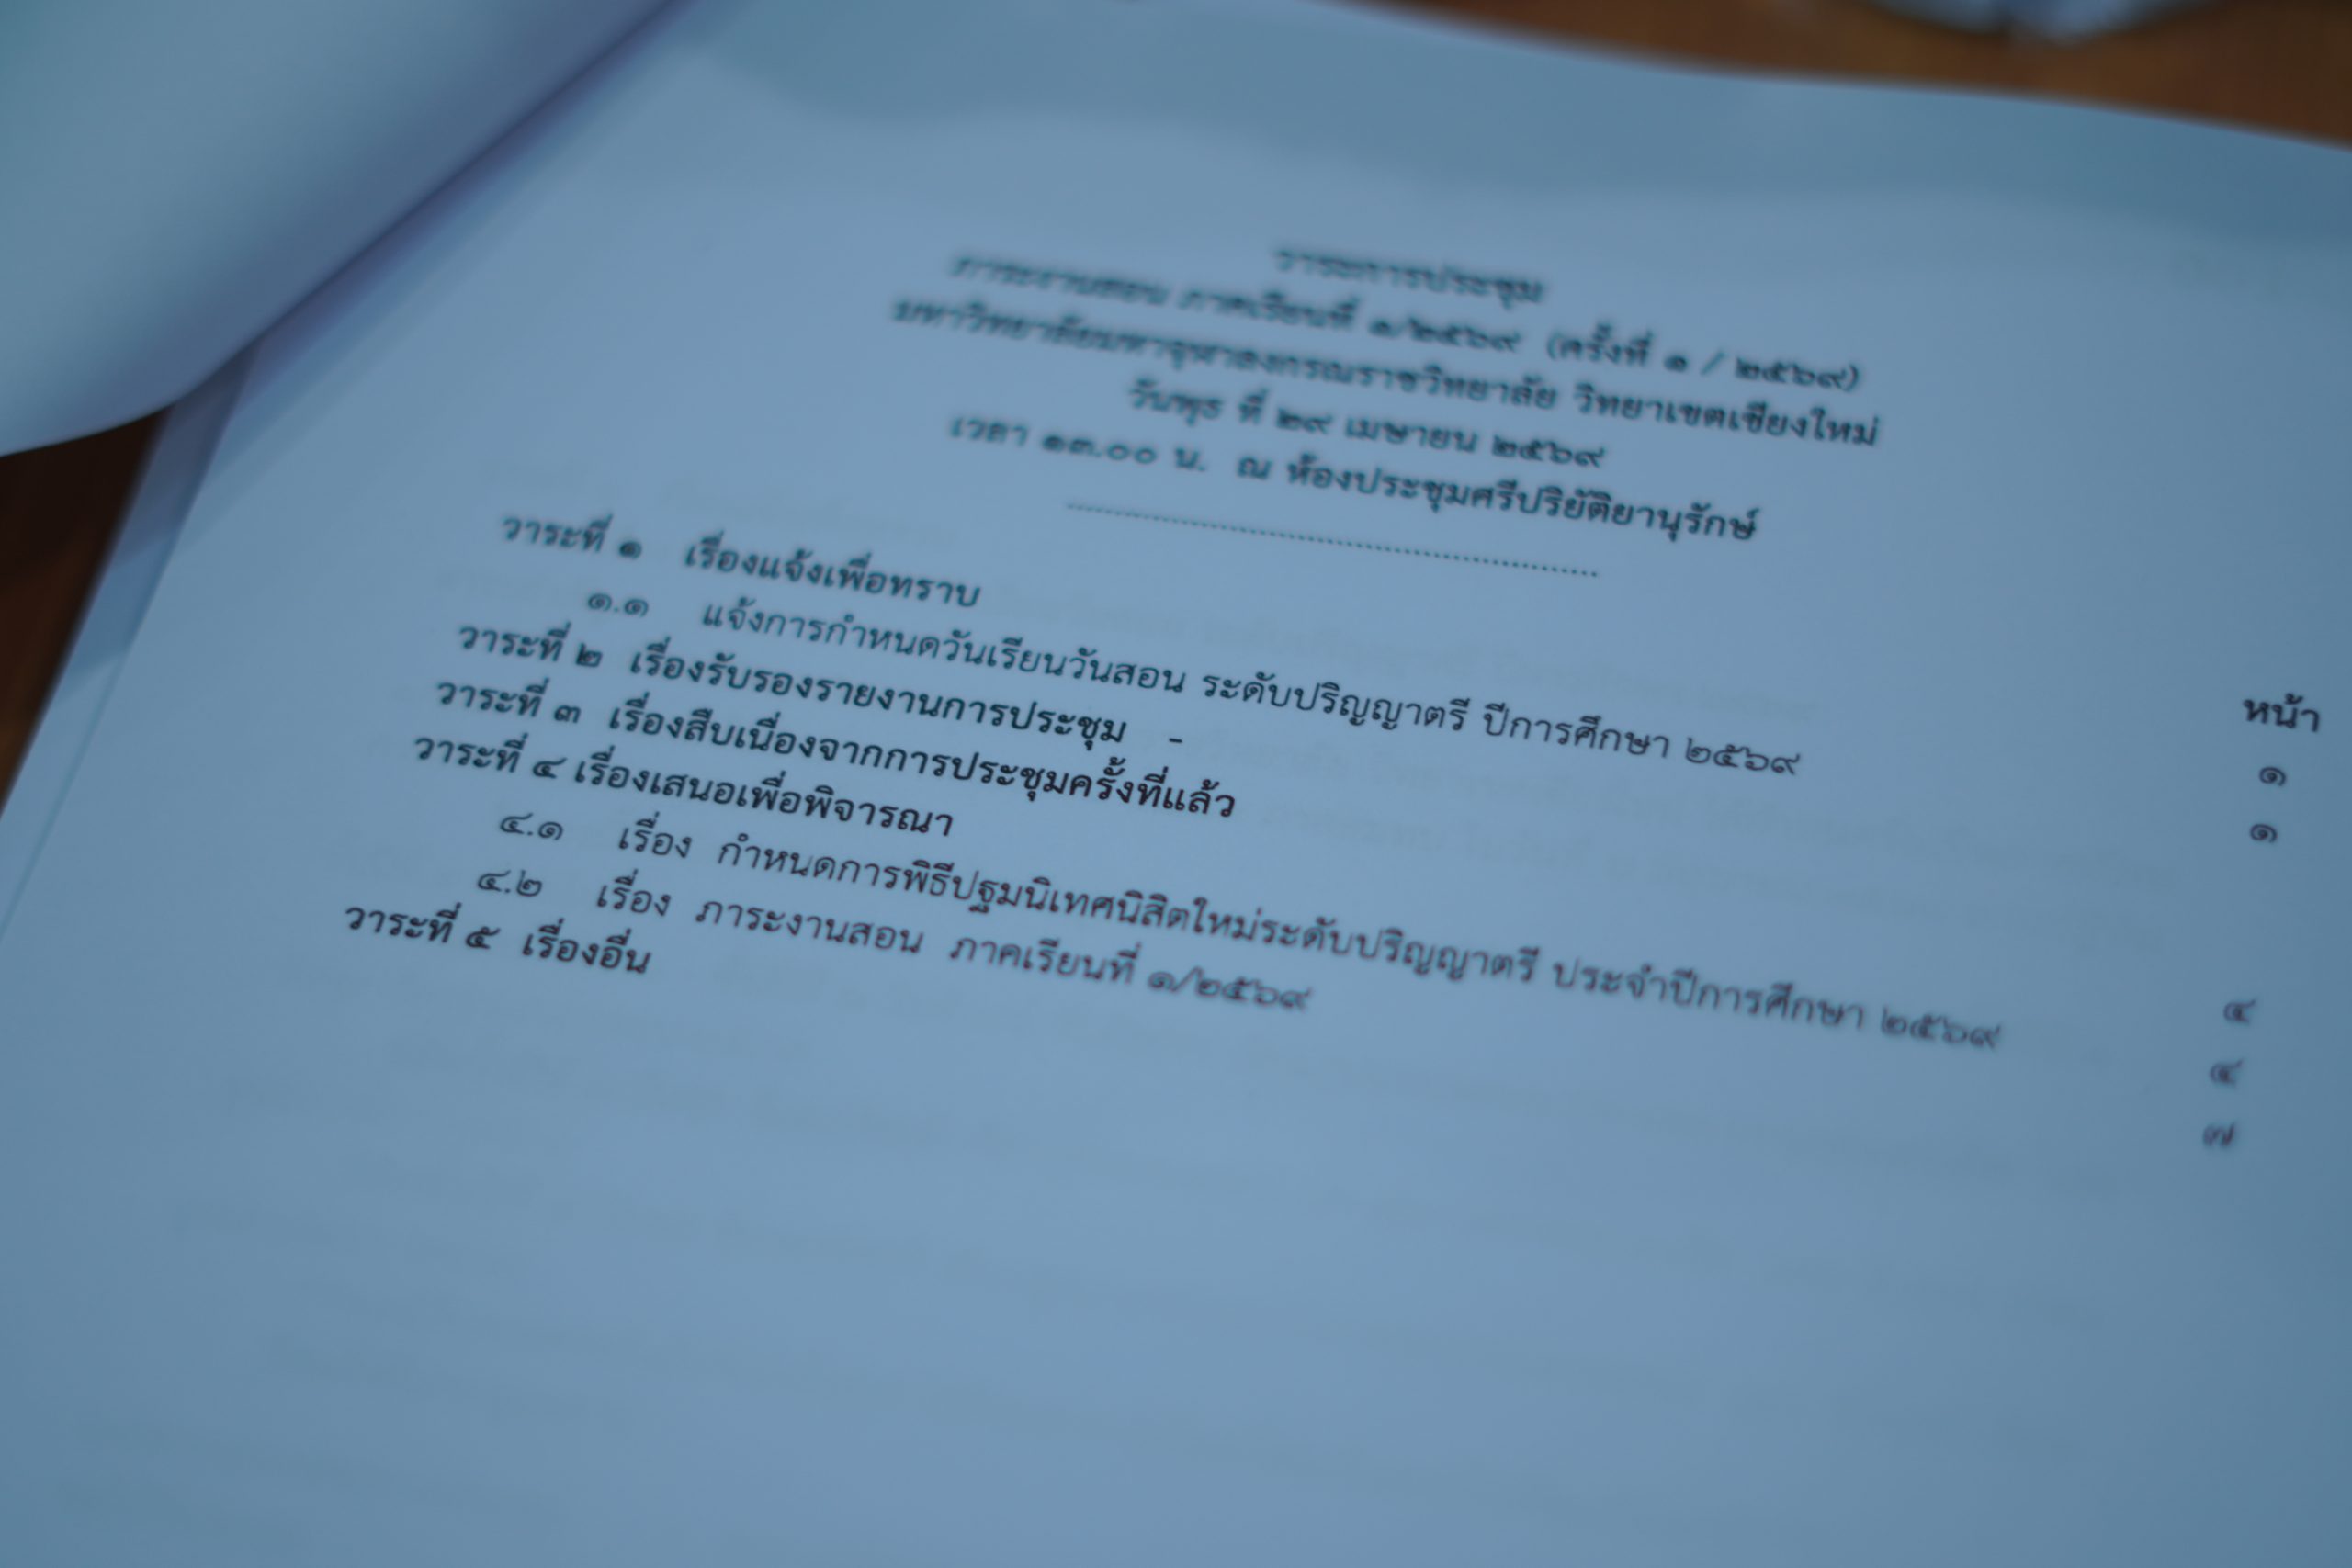 วาระการประชุม
ภาระงานสอน ภาคเรียนที่ ๑/๒๕๖๙ (ครั้งที่ ๑ / ๒๕๖๙)
มหาวิทยาลัยมหาจุฬาลงกรณราชวิทยาลัย วิทยาเขตเชียงใหม่
วันพุธ ที่ ๒๙ เมษายน ๒๕๖๙
เวลา ๑๓.๐๐ น. ณ ห้องประชุมศรีปริยัติยานุรักษ์
หน้า
วาระที่ ๑ เรื่องแจ้งเพื่อทราบ ๑
๑.๑ แจ้งการกำหนดวันเรียนวันสอน ระดับปริญญาตรี ปีการศึกษา ๒๕๖๙ ๑
วาระที่ ๒ เรื่องรับรองรายงานการประชุม -
วาระที่ ๓ เรื่องสืบเนื่องจากการประชุมครั้งที่แล้ว
วาระที่ ๔ เรื่องเสนอเพื่อพิจารณา ๔
๔.๑ เรื่อง กำหนดการพิธีปฐมนิเทศนิสิตใหม่ระดับปริญญาตรี ประจำปีการศึกษา ๒๕๖๙ ๔
๔.๒ เรื่อง ภาระงานสอน ภาคเรียนที่ ๑/๒๕๖๙ ๗
วาระที่ ๕ เรื่องอื่น